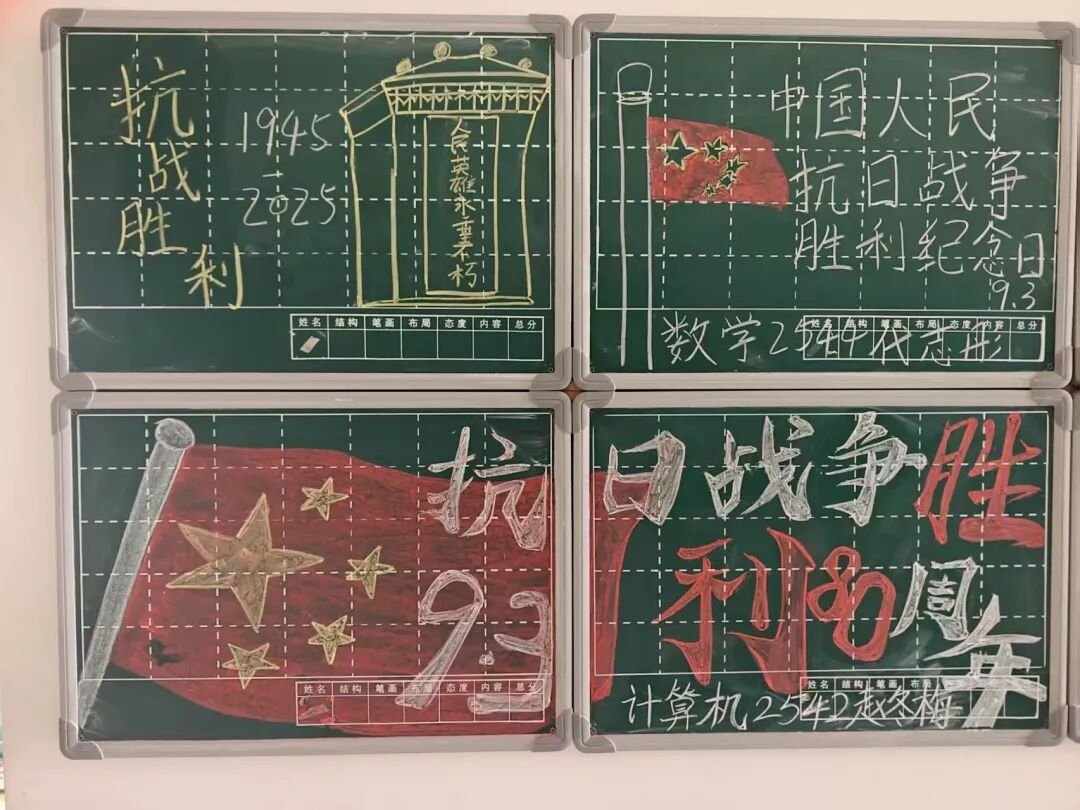 抗战胜利
1945
-
2025
人民英雄永垂不朽
姓名 结构 笔画 布局 态度 内容 总分
中国人民
抗日战争
胜利纪念日
9.3
姓名 结构 笔画 布局 态度 内容 总分
数学2544代志彤
抗日战争胜
利80周年
9.3
姓名 结构 笔画 布局 态度 内容 总分
姓名 结构 笔画 布局
计算机2542赵冬梅